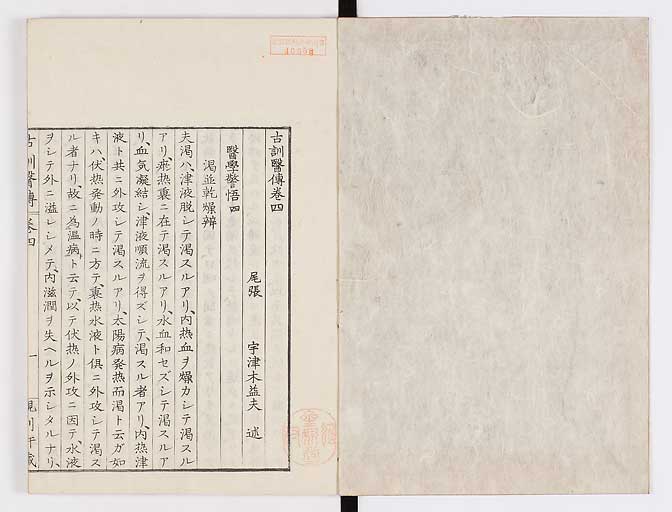 古訓醫傳卷四
尾張　宇津木益夫　述
醫學警悟四
渇並乾燥辨
夫渇ハ、津液脱シテ渇スルアリ、内熱血ヲ燥カシテ渇スル
アリ、瘀熱裏ニ在テ渇スルアリ、水血和セズシテ渇スルア
リ、血気凝結シ、津液順流ヲ得ズシテ、渇スル者アリ、内熱津
液ト共ニ外攻シテ渇スルアリ、太陽病発熱而渇ト云ガ如
キハ、伏熱発動ノ時ニ方テ、裏熱水液ト倶ニ外攻シテ渇ス
ル者ナリ、故ニ為温病ト云テ、以テ伏熱ノ外攻ニ因テ、水液
ヲシテ外ニ溢レシメテ、内滋潤ヲ失ヘルヲ示シタルナリ、
古訓醫傳　卷四　一
10898